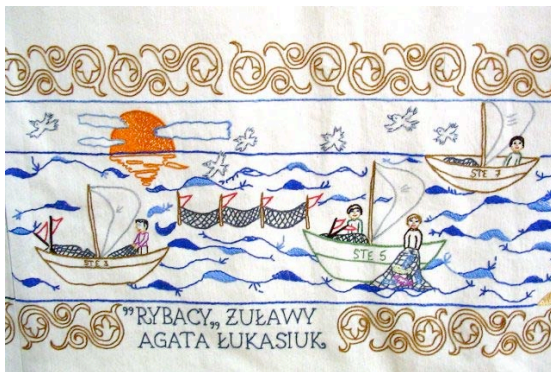 STE 7
STE 5
STE 3
"RYBACY„ ŻUŁAWY
AGATA ŁUKASIUK